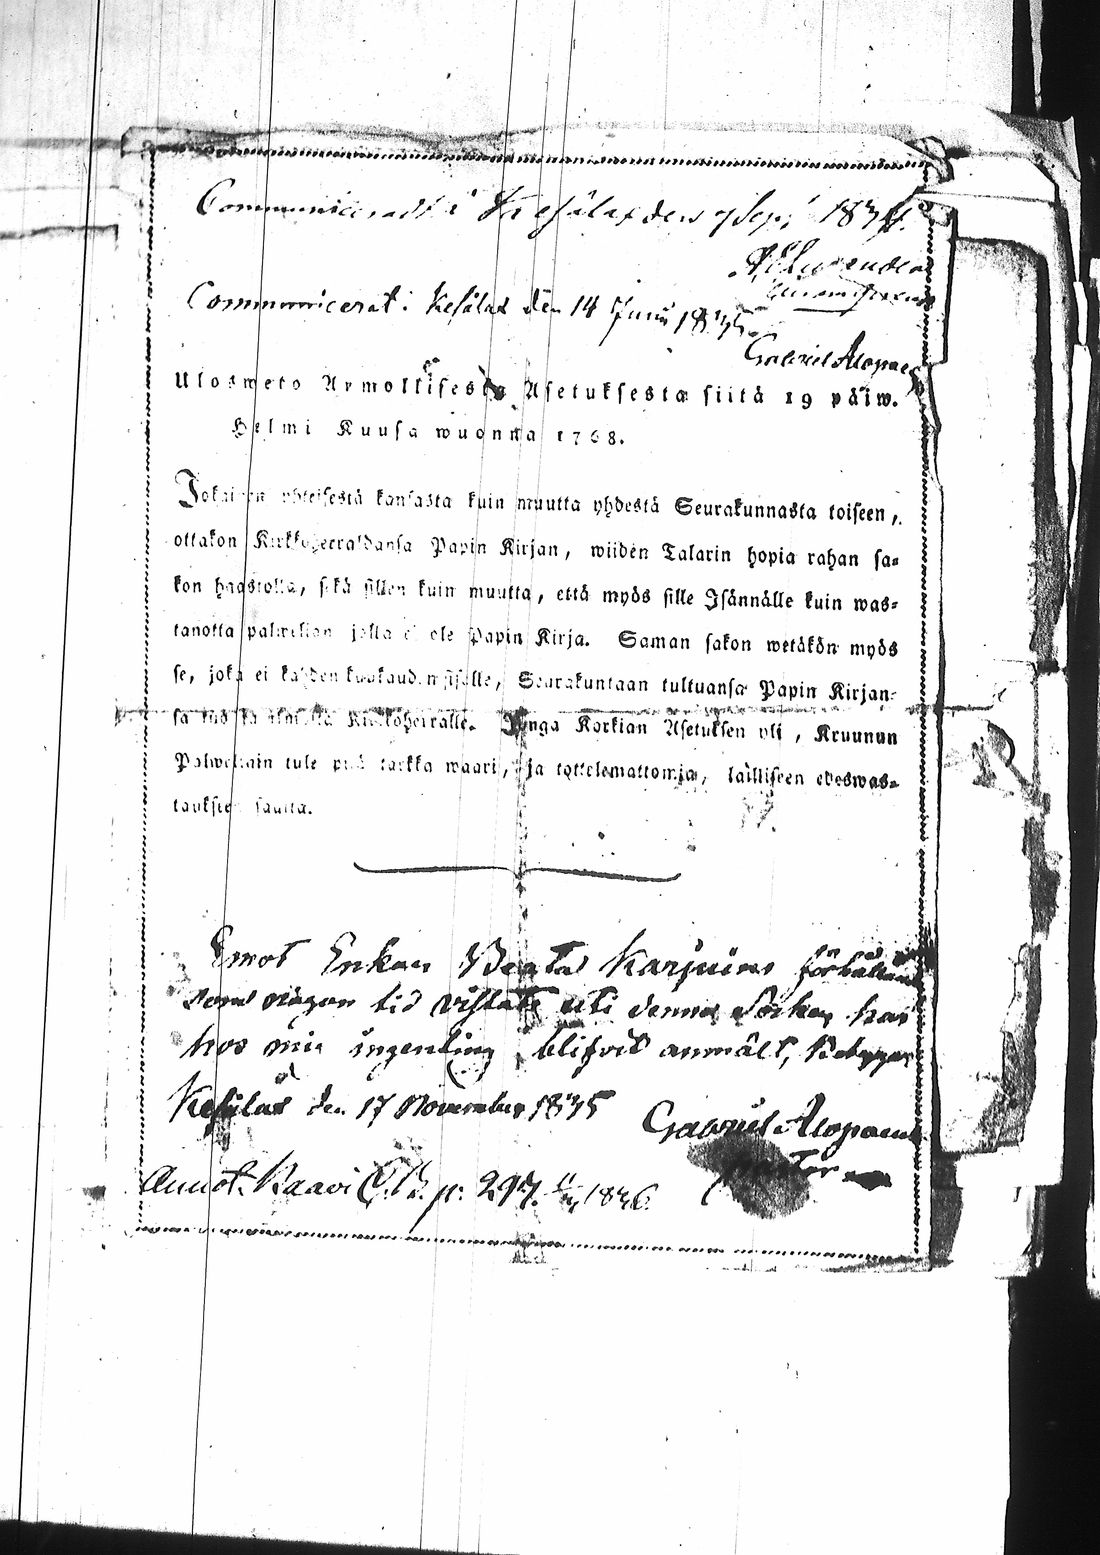 Communiceradt i Kesälax den 7 Sep: 1834.
Communicerat i Kesälax den 14 Junii 1835
Gabriel Alopaeus
Ulosweto Armollisesta Asetuksesta siitä 19 päiw.
Helmi Kuusa wuonna 1768.
Jokainen yhteisestä kansasta kuin muutta yhdestä Seurakunnasta toiseen,
ottakon Kirkkoherraldansa Papin Kirjan, wiiden Talarin hopia rahan sa=
kon haastolla, sekä sillen kuin muutta, että myös sille Isännälle kuin was=
tanotta palwelian jolla ei ole Papin Kirja. Saman sakon wetäkön myös
se, joka ei kahden kuukauden sisälle, Seurakuntaan tultuansa Papin Kirjan=
sa Kirkkoherralle. Jonga Korkian Asetuksen yli, Kruunun
Palweliain tule pitä tarkka waari, ja tottelemattomia, lailliseen edeswas=
taukseen saatta.
Emot Enkan Beata Karjuins förhållande
som någon tid vistats uti denna Socken har
hos mig ingenting blifvit anmält, Betygar
Kesälax den 17 November 1835 Gabriel Alopaeus
pastor
Annot. Kaavi C.B. p: 297. 1836.